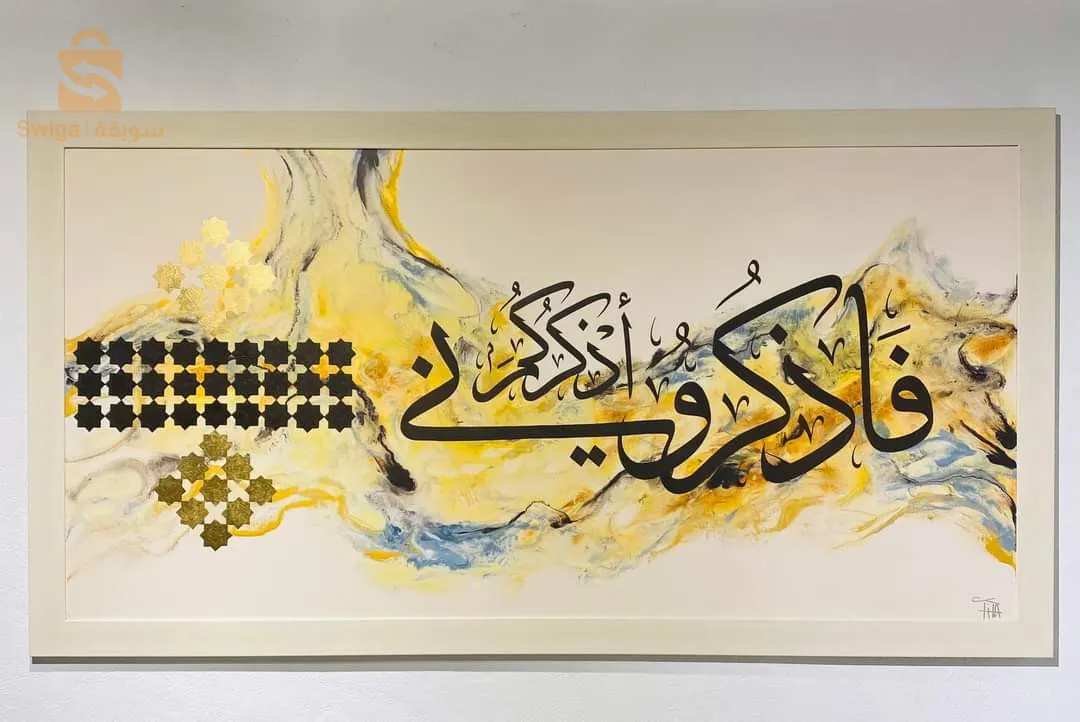 Swiga | سويقة
فَاذكُرُوني أَذْكُرُكُم